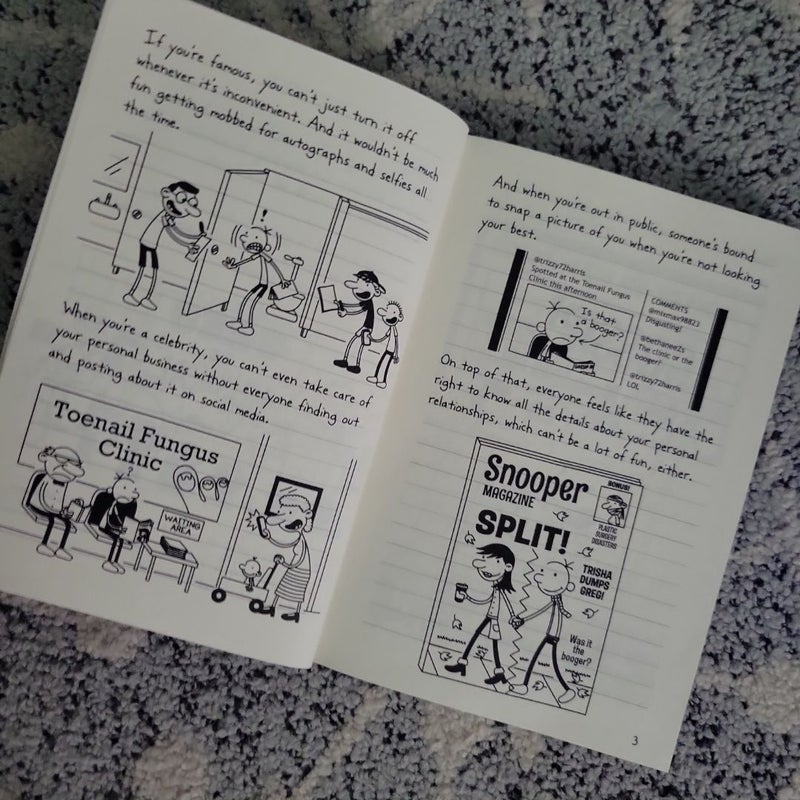 If you're famous, you can't just turn it off
whenever it's inconvenient. And it wouldn't be much
fun getting mobbed for autographs and selfies all
the time.
!
When you're a celebrity, you can't even take care of
your personal business without everyone finding out
and posting about it on social media.
Toenail Fungus
Clinic
?
WAITING
AREA
And when you're out in public, someone's bound
to snap a picture of you when you're not looking
your best.
@trizzy72harris
Spotted at the Toenail Fungus
Clinic this afternoon
Is that
a booger?
COMMENTS
@mixmax98823
Disgusting!
@bethanee2s
The clinic or the
booger?
@trizzy72harris
LOL
On top of that, everyone feels like they have the
right to know all the details about your personal
relationships, which can't be a lot of fun, either.
Snooper
MAGAZINE
BONUS!
PLASTIC
SURGERY
DISASTERS
SPLIT!
TRISHA
DUMPS
GREG!
Was it
the
booger?
3